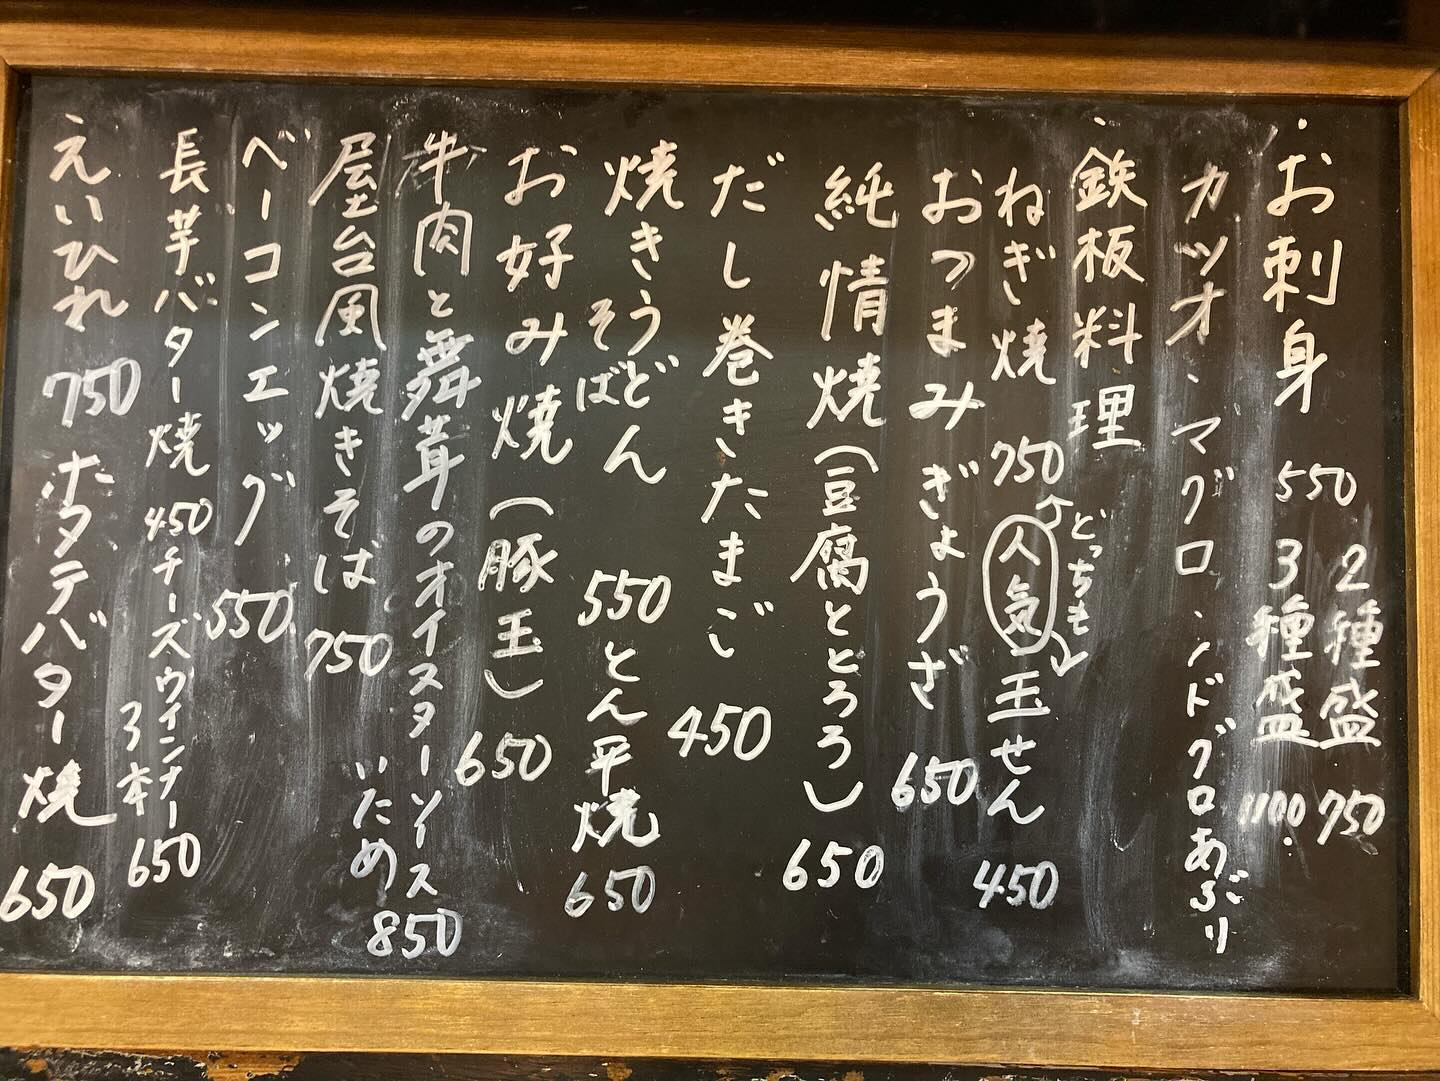 ・お刺身 550 2種盛 750
3種盛 1100.
カツオ、マグロ、ノドグロあぶり
・鉄板料理
どっちも
ねぎ焼 750 人気 玉せん 450
おつまみぎょうざ 650
純情焼(豆腐ととろろ) 650
だし巻きたまご 450
焼きうどん
そば 550 とん平焼 650
お好み焼(豚玉) 650
牛肉と舞茸のオイスターソース
いため 850
屋台風焼きそば 750
ベーコンエッグ 550
長芋バター焼 450 チーズウインナー
3本 650
えいひれ 750 ホタテバター焼 650